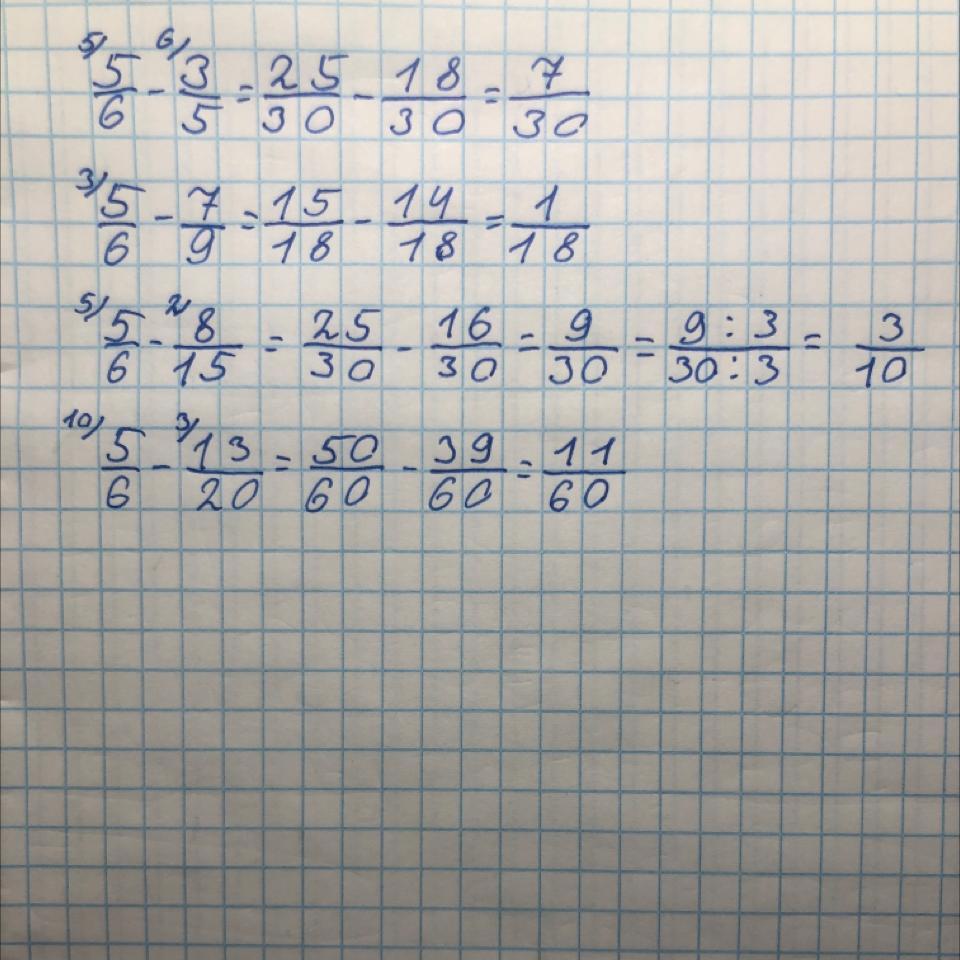 5/ 5/6 - 6/ 3/5 = 25/30 - 18/30 = 7/30
3/ 5/6 - 7/9 = 15/18 - 14/18 = 1/18
5/ 5/6 - 2/ 8/15 = 25/30 - 16/30 = 9/30 = 9:3/30:3 = 3/10
10/ 5/6 - 3/ 13/20 = 50/60 - 39/60 = 11/60